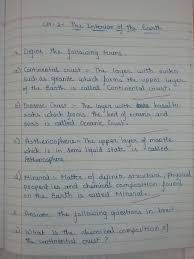 CH-2- The Interior of the Earth
Define the following terms.
Continental crust :- The layer with rocks
such as granite which forms the upper layer
of the Earth is called Continental crust.
Oceanic Crust :- The layer with basaltic
rocks which forms the bed of oceans and
seas is called Oceanic Crust.
Asthenosphere :- The upper layer of mantle
which is in semi liquid state is called
Asthenosphere
Mineral :- Matter of definite structure, physical
properties and chemical composition found
on the Earth is called Mineral.
Answer the following questions in brief.
What is the chemical composition of
the continental crust ?